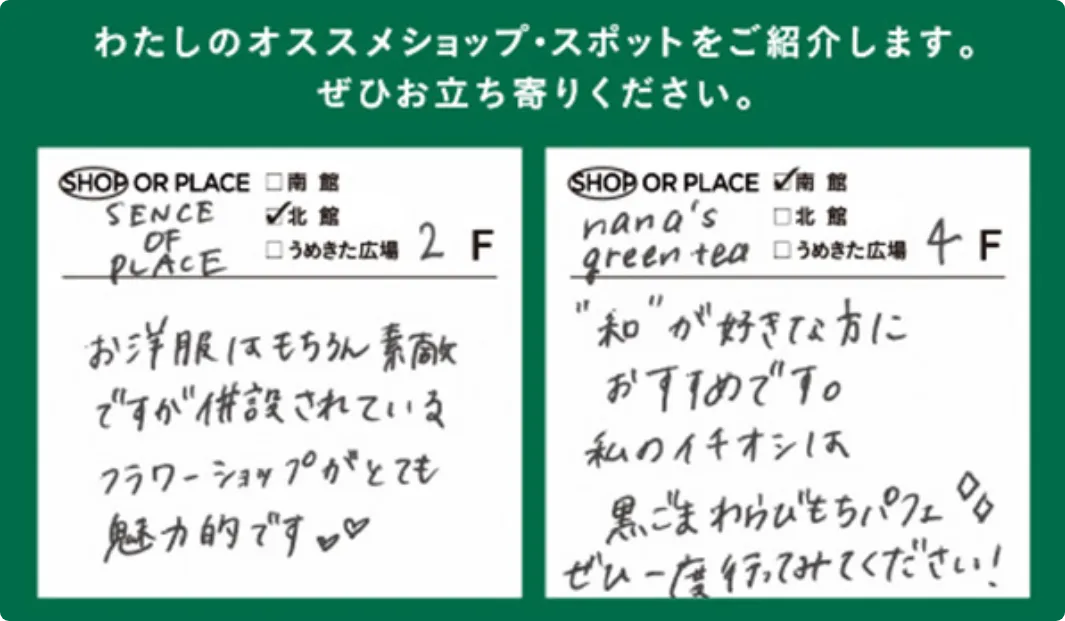 わたしのオススメショップ・スポットをご紹介します。
ぜひお立ち寄りください。
SHOP OR PLACE □南館
SENCE ☑北館
OF □うめきた広場 2 F
PLACE
お洋服はもちろん素敵
ですが併設されている
フラワーショップがとても
魅力的です♡♡
SHOP OR PLACE ☑南館
nana's □北館
green tea □うめきた広場 4 F
"和"が好きな方に
おすすめです。
私のイチオシは
黒ごまわらびもちパフェ◇◇
ぜひ一度行ってみてください!